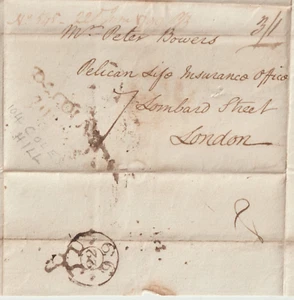 3/1
Mr. Peter Bowers
Pelican Life Insurance Office
7 Lombard Street
London
HILL